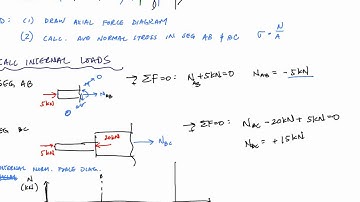 D: (1) DRAW AXIAL FORCE DIAGRAM
(2) CALC. AVG NORMAL STRESS IN SEG AB & BC σ = N/A
CALC INTERNAL LOADS
SEG AB
5kN N_AB
→ ΣF=0: N_AB + 5kN = 0 N_AB = -5kN
EG BC
5kN 20kN N_BC
→ ΣF=0: N_BC - 20kN + 5kN = 0
N_BC = +15kN
NTERNAL NORM. FORCE DIAG.
N
(kN)